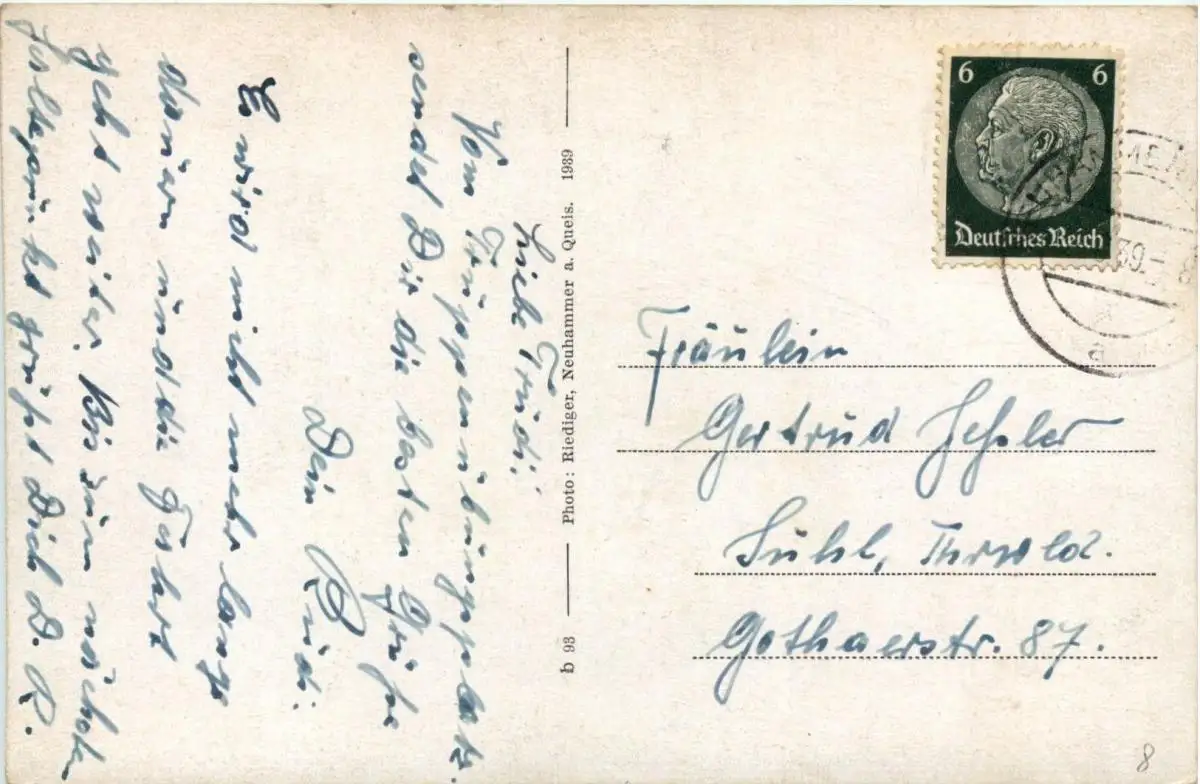 Liebe Trudi!
Vom Truppenübungsplatz
sendet Dir die besten Grüße
Dein Rudi.
Es wird nicht mehr lange
dauern und die Fahrt
geht weiter. Bis zum nächsten
grüßt Dich D. R.
b 93
Photo: Riediger, Neuhammer a. Queis. 1939
6 6
Deutsches Reich
39.- 8
a
Fräulein
Gertrud
Suhl, Thrwld.
Gothaerstr. 87.
8